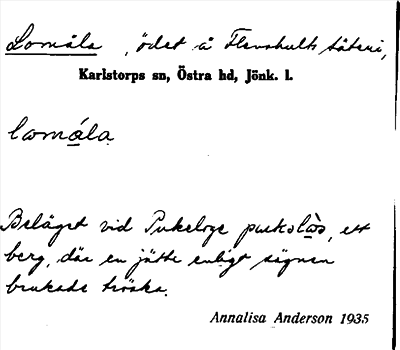 Lomåla, ödet å Flenshults säteri,
Karlstorps sn, Östra hd, Jönk. l.
lomåla
Beläget vid Pukeloge pukslå̱s, ett
berg, där en jätte enligt sägnen
brukade tröska.
Annalisa Anderson 1935